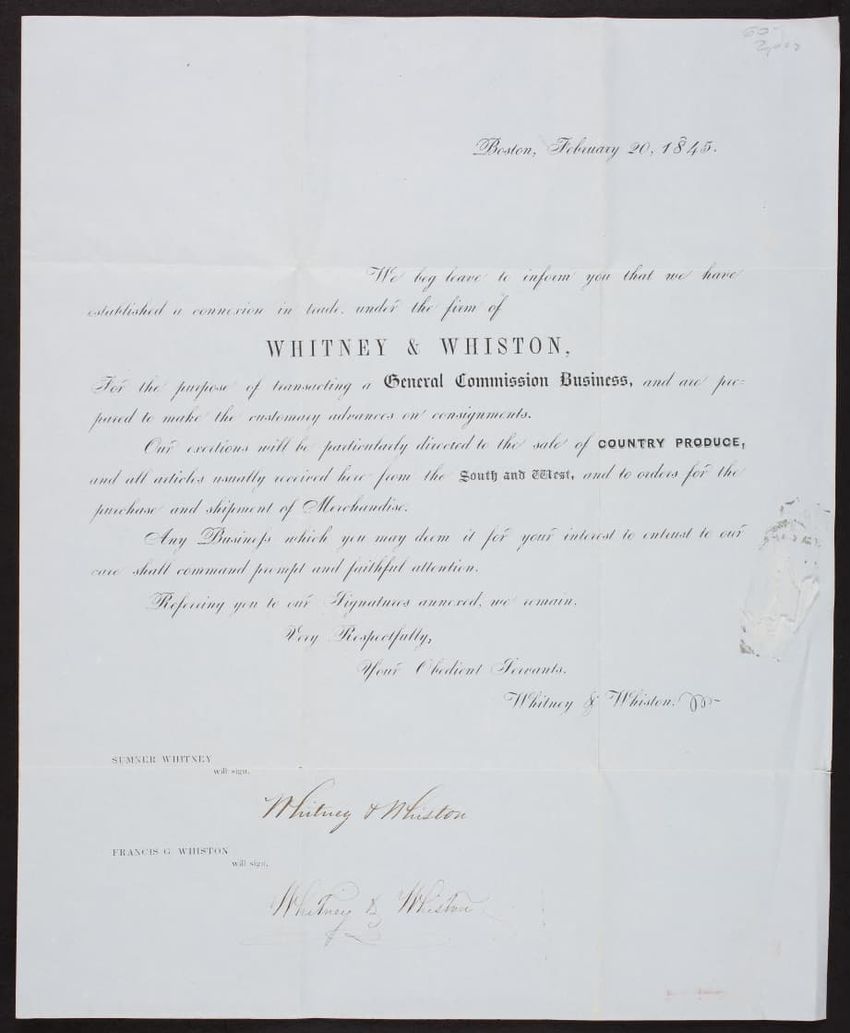 Boston, February 20, 1845.
We beg leave to inform you that we have
established a connexion in trade, under the firm of
WHITNEY & WHISTON,
For the purpose of transacting a General Commission Business, and are pre-
pared to make the customary advances on consignments.
Our exertions will be particularly directed to the sale of COUNTRY PRODUCE,
and all articles usually received here from the South and West, and to orders for the
purchase and shipment of Merchandise.
Any Business which you may deem it for your interest to entrust to our
care shall command prompt and faithful attention.
Referring you to our Signatures annexed, we remain,
Very Respectfully,
Your Obedient Servants.
Whitney & Whiston.
SUMNER WHITNEY
will sign,
Whitney & Whiston
FRANCIS G WHISTON
will sign,
Whitney & Whiston